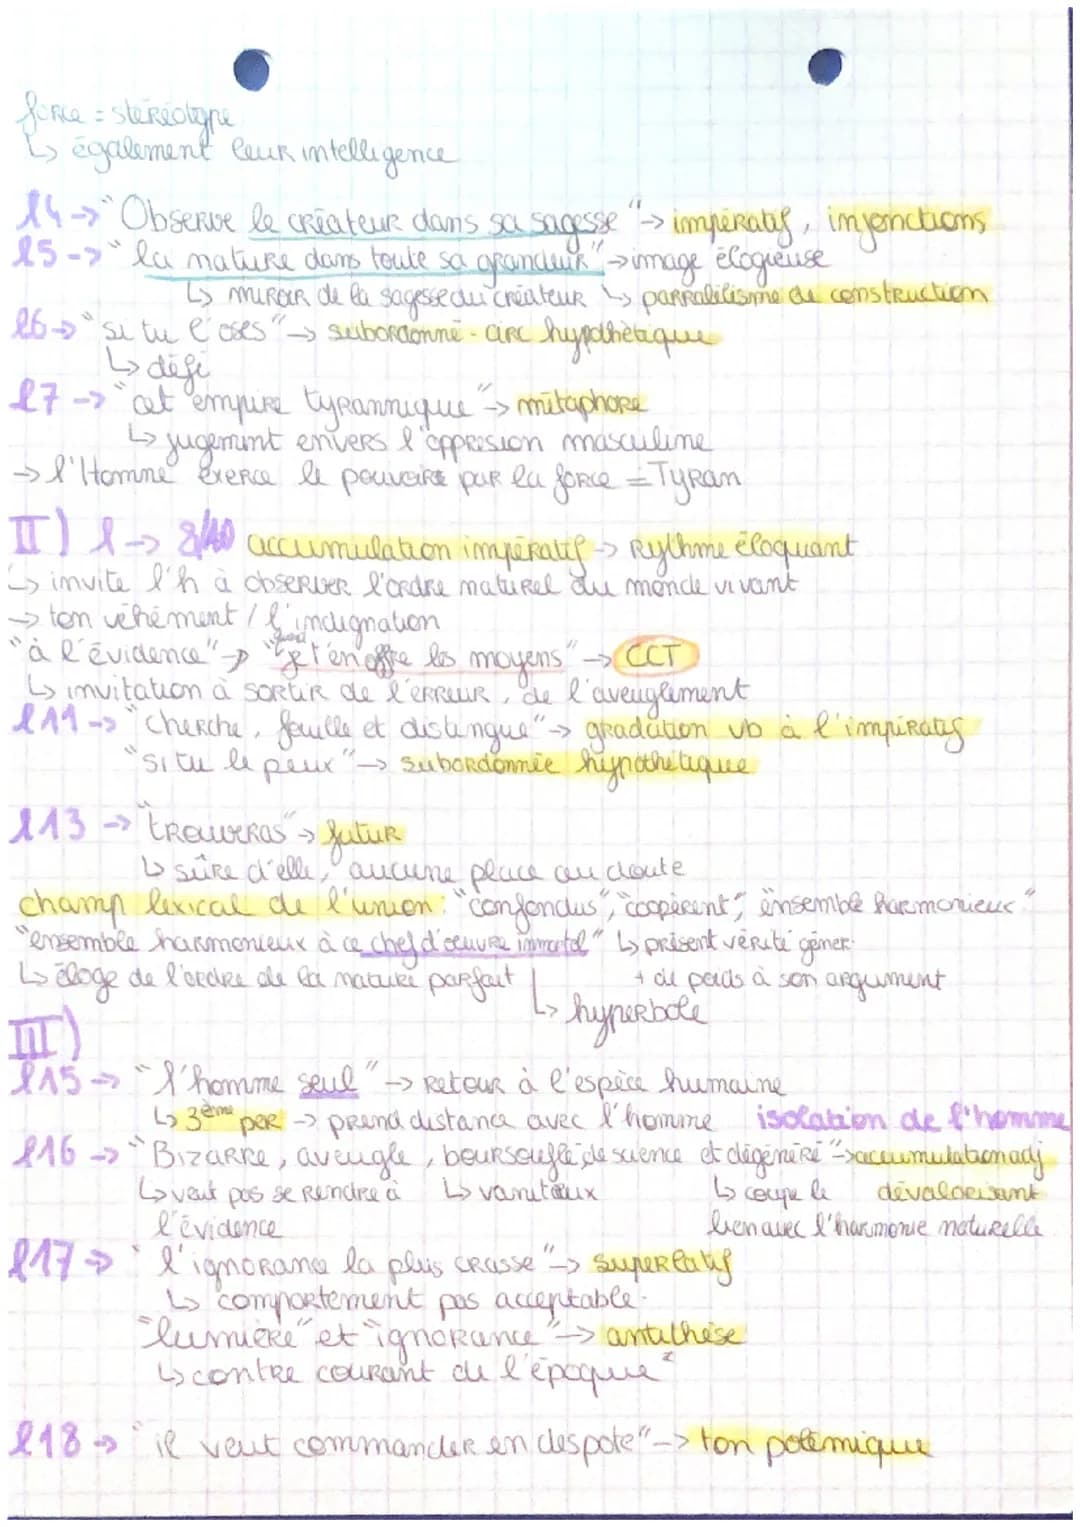 force = stéréotype
↳ également leur intelligence
l4 → "Observe le créateur dans sa sagesse" → impératif, injonctions
l5 → "la nature dans toute sa grandeur" → image élogieuse
↳ miroir de la sagesse du créateur ↳ parralélisme de construction
l6 → "si tu l'oses" → subordonné - circ hypothètique
↳ défi
l7 → "cet empire tyrannique" → métaphore
↳ jugement envers l'oppresion masculine
→ l'Homme exerce le pouvoire par la force = Tyran
II) l → 8/10 accumulation impératif → Rythme éloquant
↳ invite l'h à observer l'ordre naturel du monde vivant
→ ton véhément / l'indignation
"à l'évidence" → "quand je t'en offre les moyens" → CCT
↳ invitation à sortir de l'erreur, de l'aveuglement
l11 → "Cherche, fouille et distingue" → gradation vb à l'impératif
"si tu le peux" → subordonnée hypothétique
l13 → "trouveras" → futur
↳ sûre d'elle, aucune place au doute
champ lexical de l'union: "confondus", "coopèrent", "ensemble harmonieux"
"ensemble harmonieux à ce chef d'œuvre immortel" ↳ présent vérité géner.
↳ éloge de l'ordre de la nature parfait + de poids à son argument
↳ hyperbole
III)
l15 → "l'homme seul" → retour à l'espèce humaine
↳ 3ème per → prend distance avec l'homme isolation de l'homme
l16 → "Bizarre, aveugle, boursouflé de science et dégénéré" → accumulation adj
↳ veut pas se rendre à ↳ vaniteux ↳ coupe le dévalorisant
l'évidence lien avec l'harmonie naturelle
l17 → "l'ignorance la plus crasse" → superlatif
↳ comportement pas acceptable.
"lumière" et "ignorance" → antithèse
↳ contre courant de l'époque
l18 → "il veut commander en despote" → ton polémique